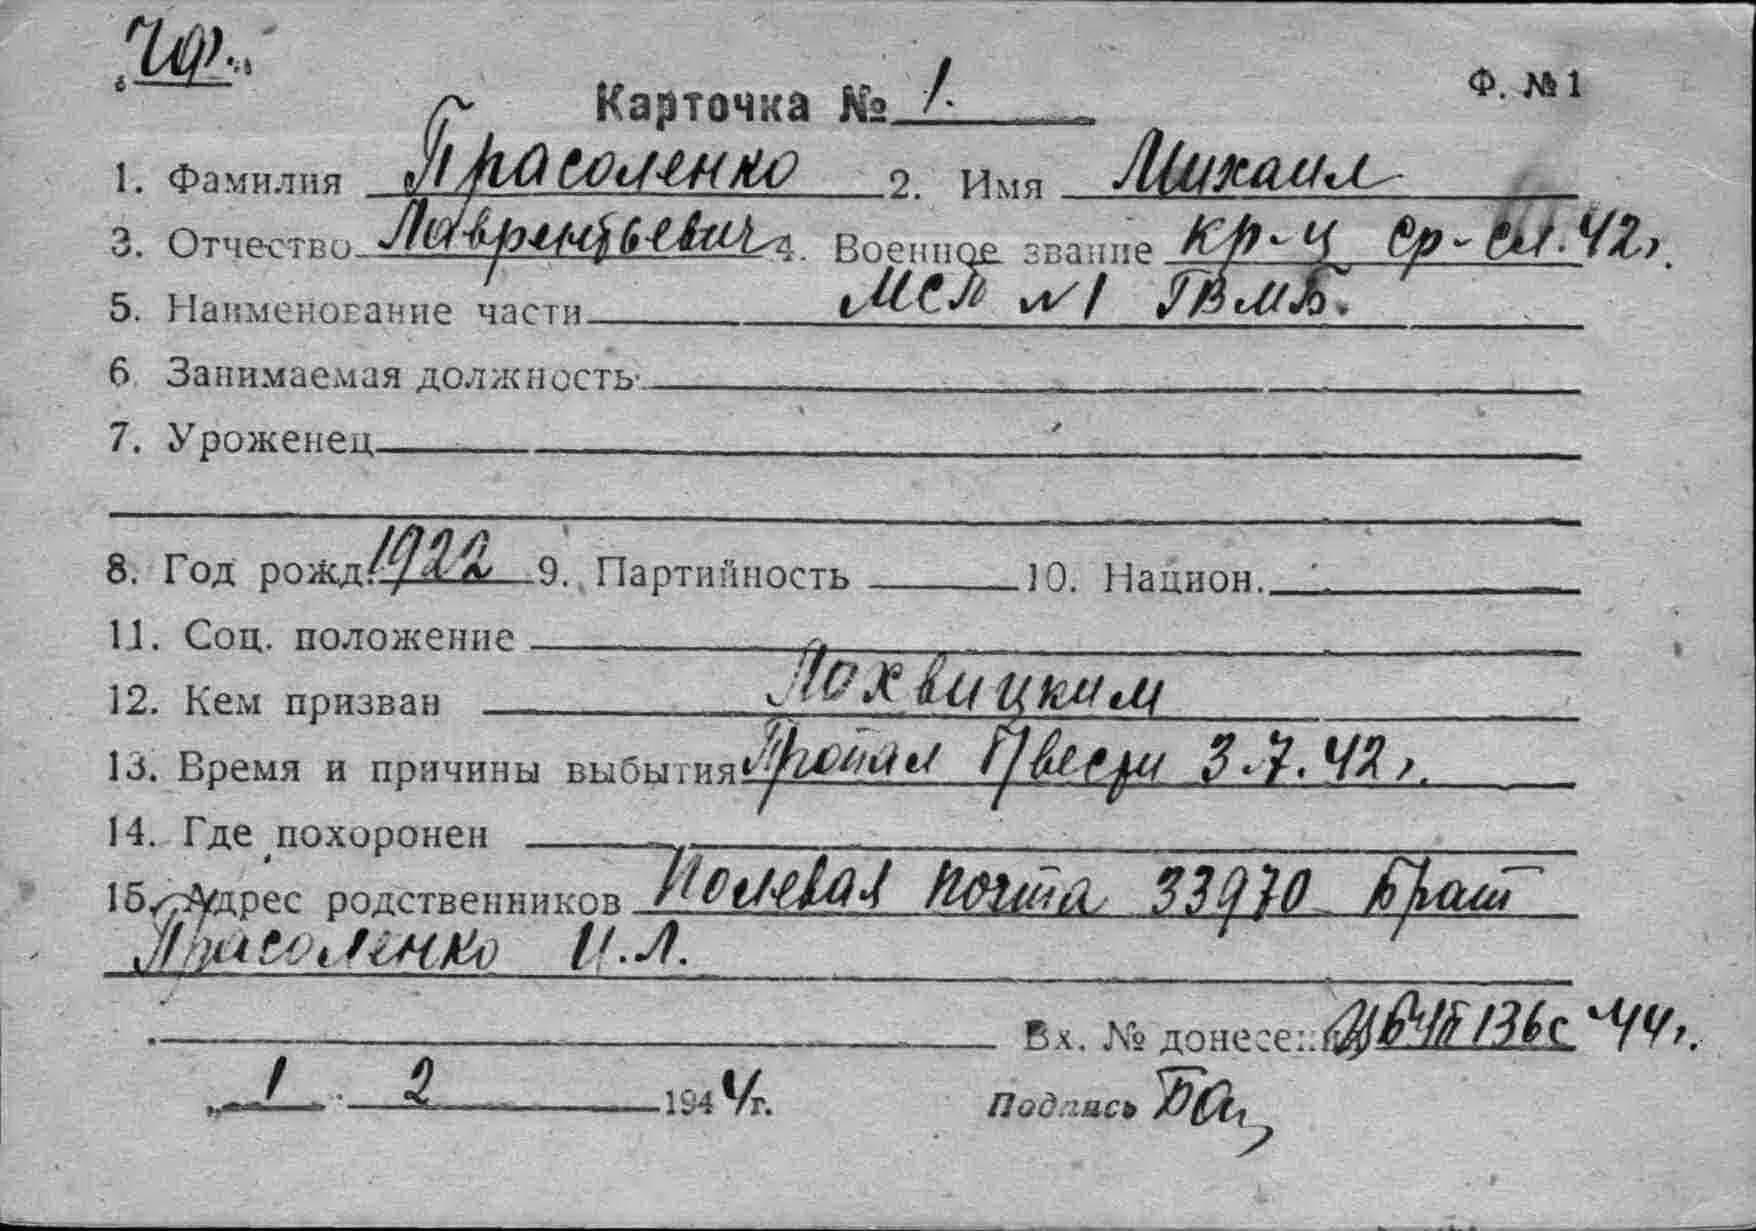 ЧФ.
Ф. №1
Карточка № 1.
1. Фамилия Прасоленко 2. Имя Михаил
3. Отчество Лаврентьевич 4. Военное звание кр-ц ср-сл. 42г.
5. Наименование части МСП №1 ГВМБ.
6. Занимаемая должность
7. Уроженец
8. Год рожд. 1922 9. Партийность 10. Национ.
11. Соц. положение
12. Кем призван Лохвицким
13. Время и причины выбытия Пропал Пвести 3.7.42г.
14. Где похоронен
15. Адрес родственников Полевая почта 33970 Брат
Прасоленко И.Л.
Вх. № донесения 136с 44г.
1 2 1944г. Подпись